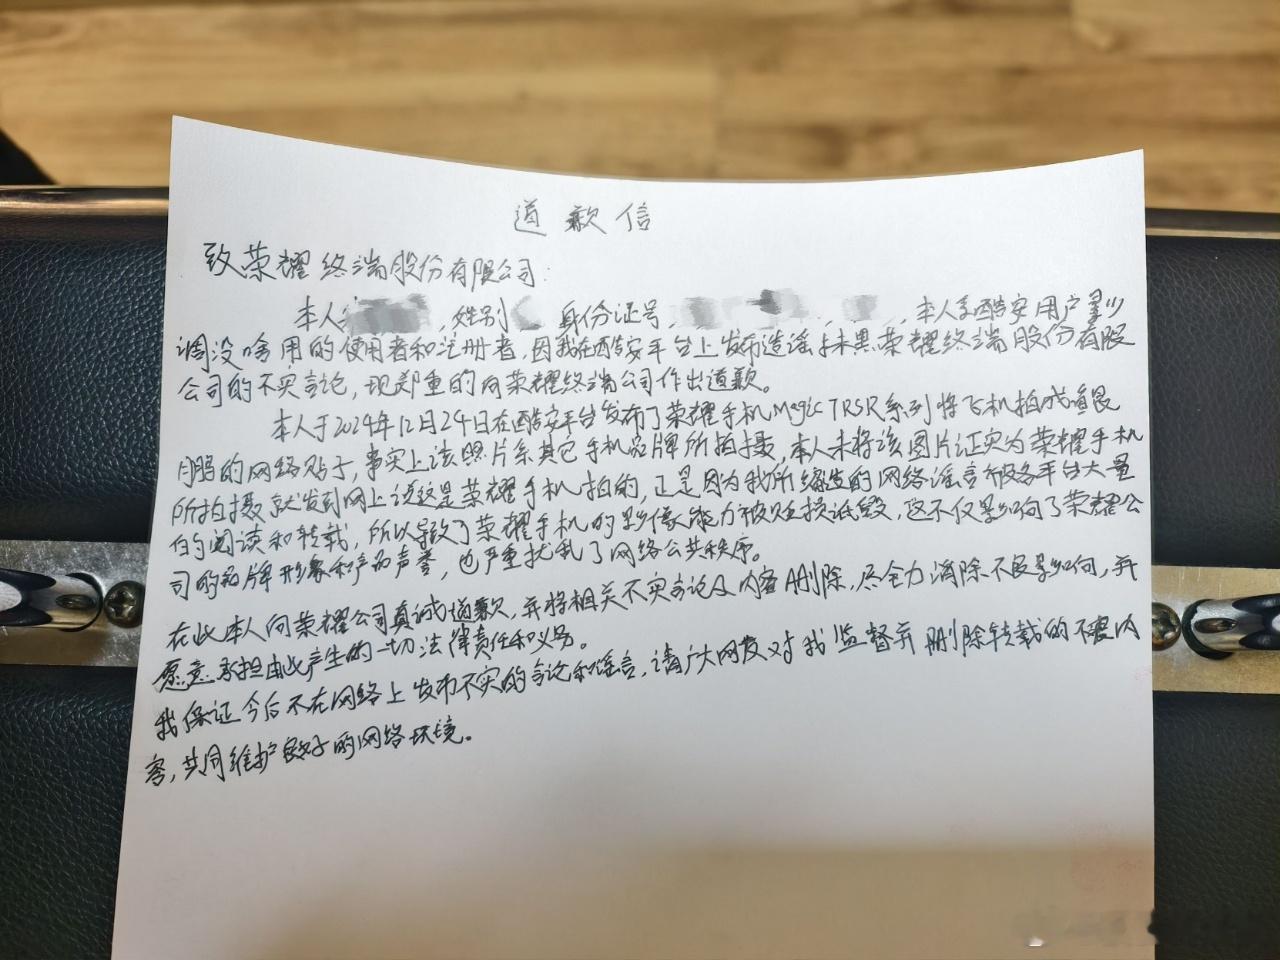 道歉信
致荣耀终端股份有限公司：
本人，姓别 身份证号，，本人系酷安用户影
调没啥用的使用者和注册者，因我在酷安平台上发布造谣抹黑荣耀终端股份有限
公司的不实言论，现郑重的向荣耀终端公司作出道歉。
本人于2024年12月24日在酷安平台发布了荣耀手机Magic7RSR系列将飞机拍成鲲
鹏的网络贴子，事实上该照片系其它手机品牌所拍摄，本人未将该图片证实为荣耀手机
所拍摄就发到网上说这是荣耀手机拍的，正是因为我所编造的网络谣言被各平台大量
的阅读和转载，所以导致了荣耀手机的影像能力被贬损诋毁，这不仅影响了荣耀公
司的品牌形象和产品声誉，也严重扰乱了网络公共秩序。
在此本人向荣耀公司真诚道歉，并将相关不实言论及内容删除，尽全力消除不良影响，并
愿意承担由此产生的一切法律责任和义务。
我保证今后不在网络上发布不实的言论和谣言，请广大网友对我监督并删除转载的不实内
容，共同维护良好的网络环境。